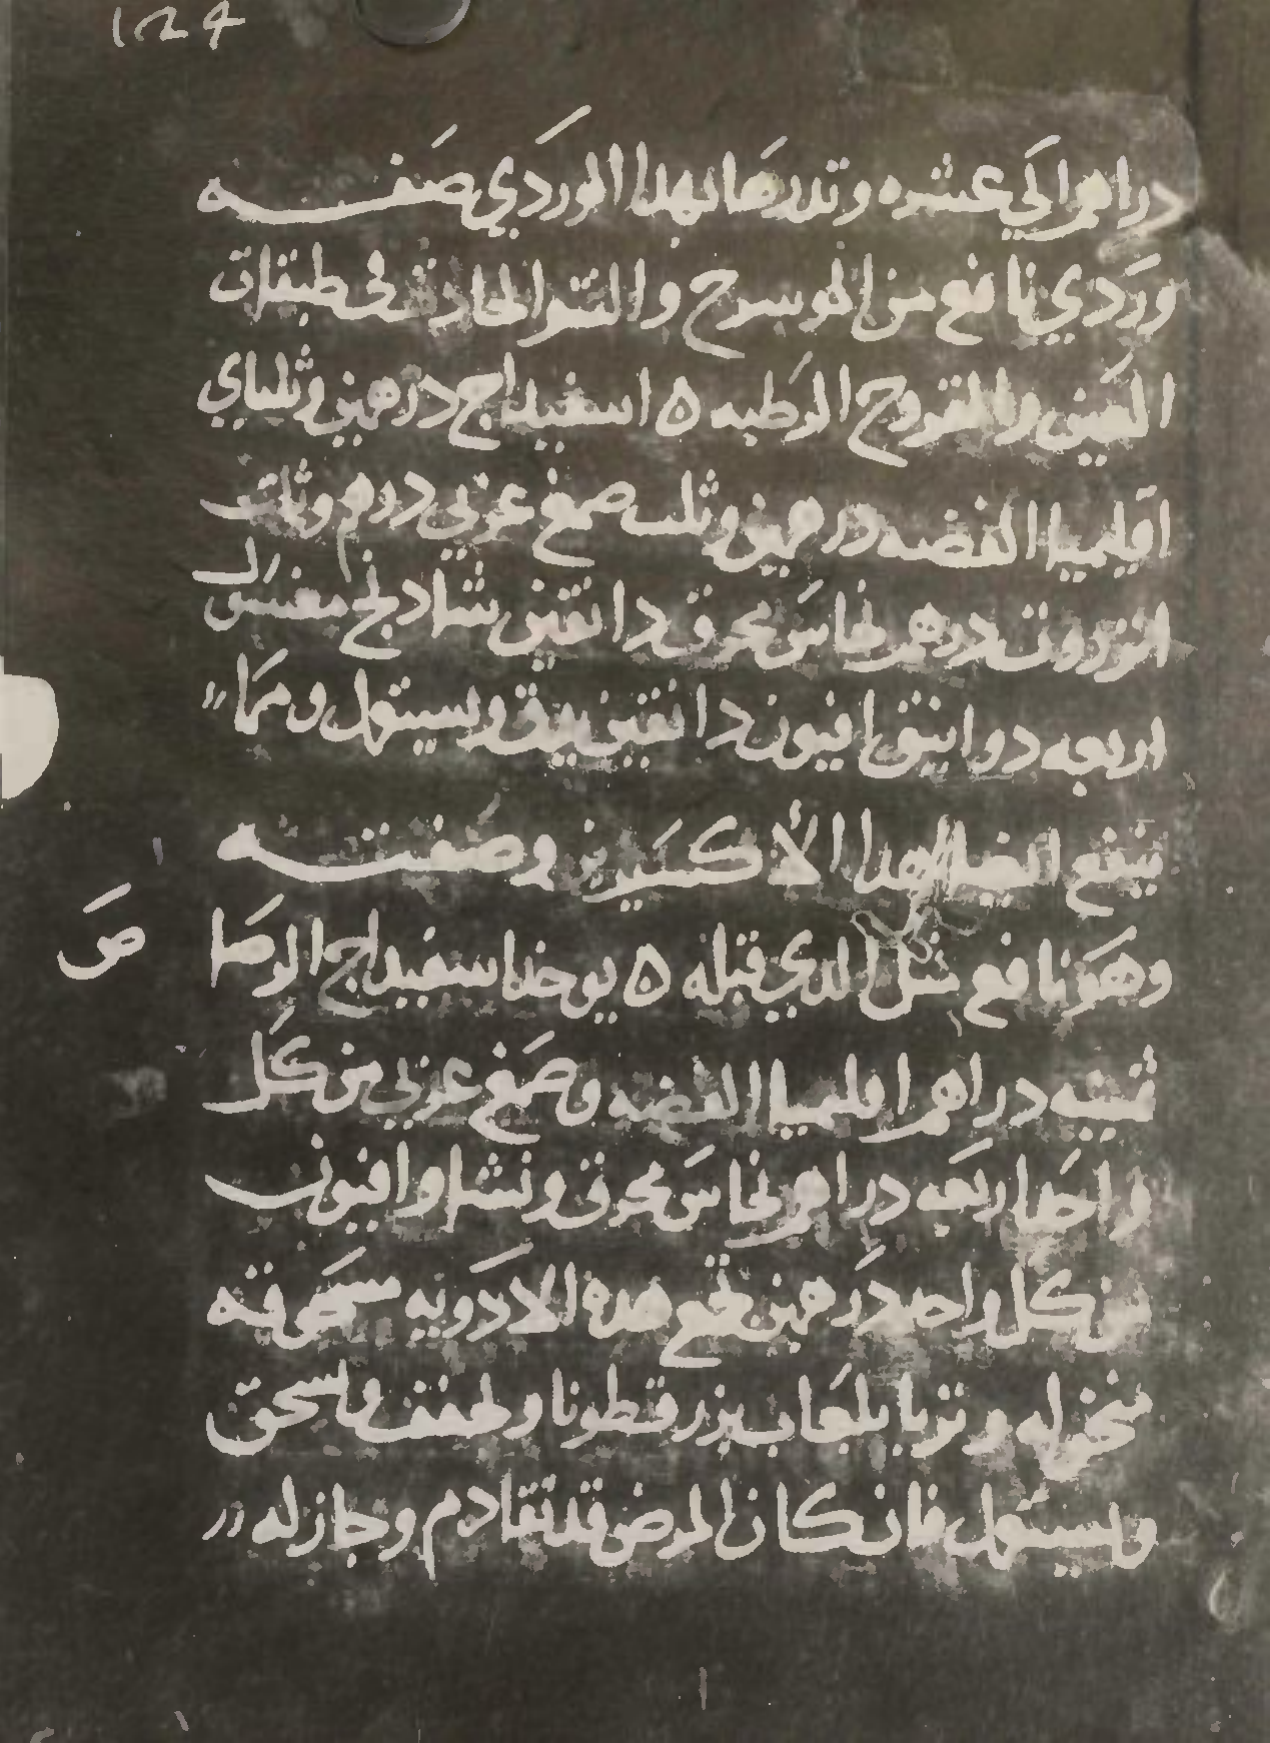 ١٢٤
دراهم الي عشره وتدرها بهدا الوردي صفه
وردي نافع من الموسرج والنتوا الحادث في طبقات
العين والقروح الرطبه ه اسفيداج درهمين وثلثاي
اقليميا الفضه درهمين وثلث صمغ عربي درهم وثلث
انزروت درهم نحاس محرق دانقين شادنج مغسول
اربعه دوانيق افيون دانقين يدق ويستعمل ومما
ينفع ايضا لهدا الاكسيرين وصفته
وهو نافع مثل الدي قبله ه يوخد اسفيداج الرصا
ص
ثمنيه دراهم اقليميا الفضه وصمغ عربي من كل
واحد اربعه دراهم نحاس محرق ونشا وافيون
من كل واحد درهمين تجمع هده الادويه مسحوقه
منخوله وتربا بلعاب بزرقطونا ويجفف ويسحق
ويستعمل فان كان المرض قد تقادم وجاز له